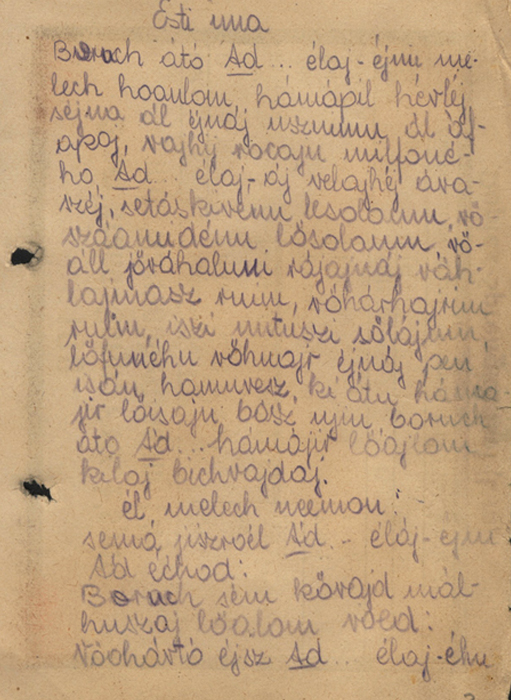 Esti ima
Boruch átó Ad... élaj-éjnu me-
lech hoaulom, hámápil hévléj
séjno ál éjnáj usznumu ál áf-
apoj, vajhij rocaju milfoné-
ho Ad... élaj-áj vélajhéj ává-
széj, setáskivénu lesolaum, vö-
száámidénu lösolaum, vö-
áll jöváhaluni rájajnáj váh-
lajmasz roim, vöhárhajrim
roim, iszi mituszi sölájmo,
löfunéhu vöhoajr éjnáj pen
ison, hamovesz, ki áto hámo-
jir löisajn bász ojin boruch
áto Ad... hámájir löajlom
kiloj bichvajdaj.
él melech neemon:
semá jiszroél Ad... élaj-éjnu
Ad echod:
Boruch sém kövajd mál-
huszaj löalom voed:
Vöohávtó éjsz Ad... élaj-éhu